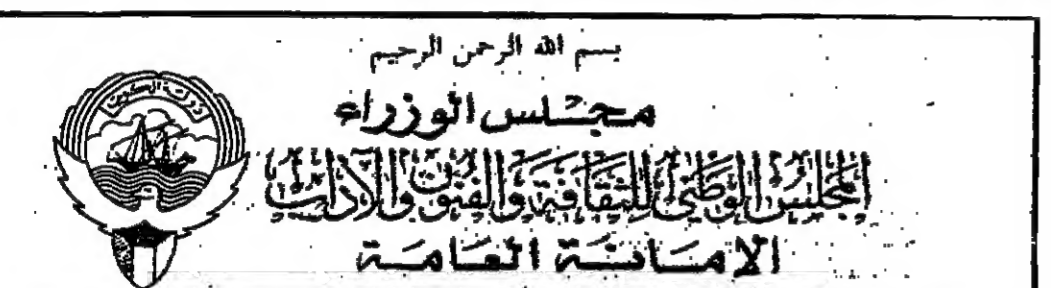 بسم الله الرحمن الرحيم
مجلس الوزراء
المجلس الوطني للثقافة والفنون والآداب
الامانة العامة
دولة الكويت